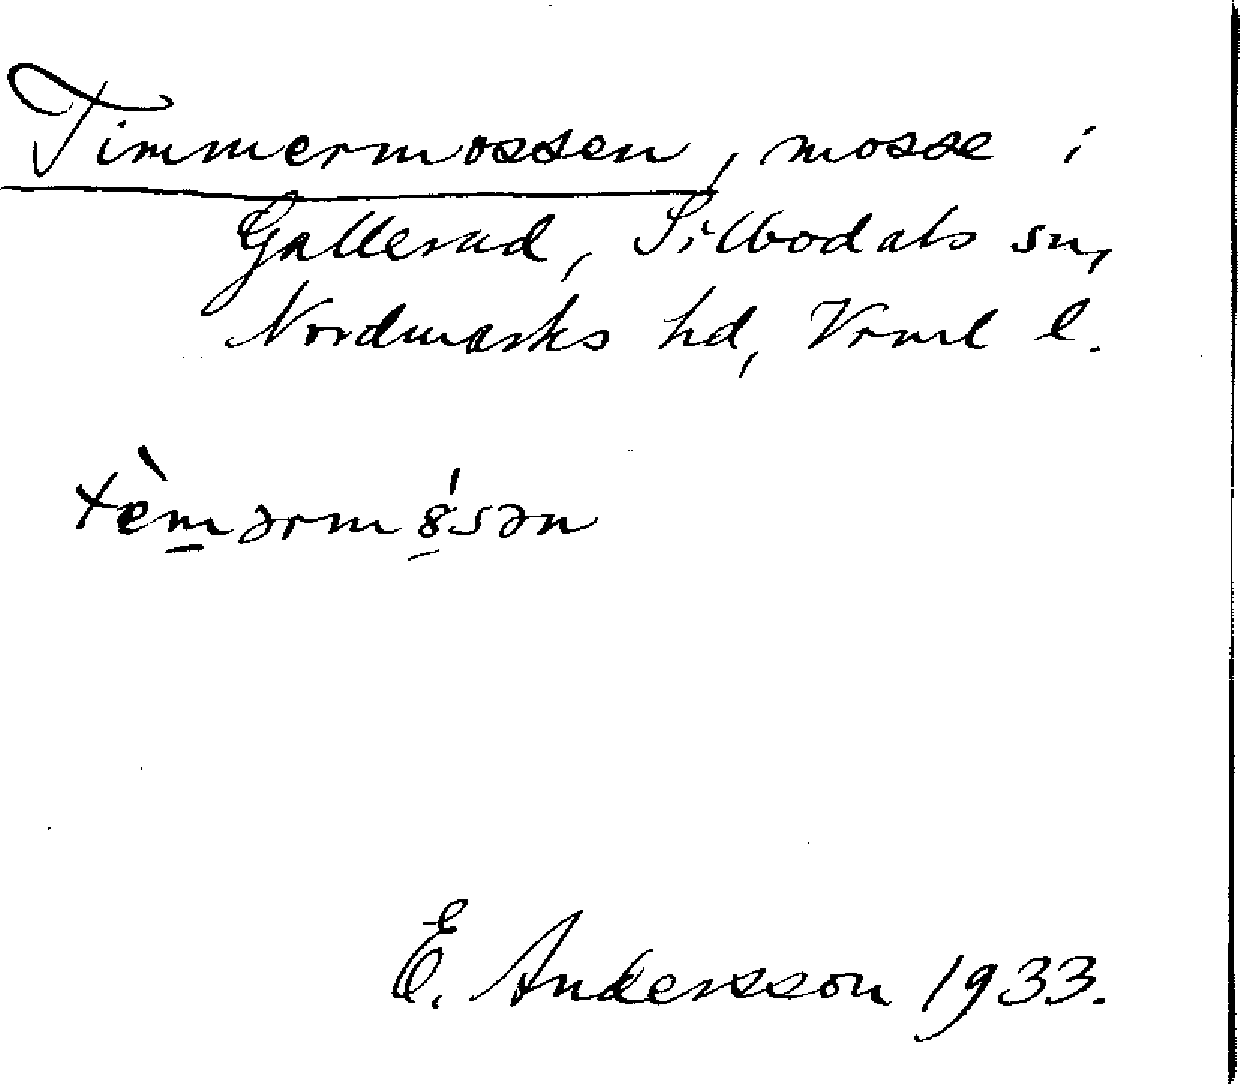 Timmermossen, mosse i
Gallerud, Silbodals sn,
Nordmarks hd, Vrml l.
tèmərm8́sən
E. Andersson 1933.